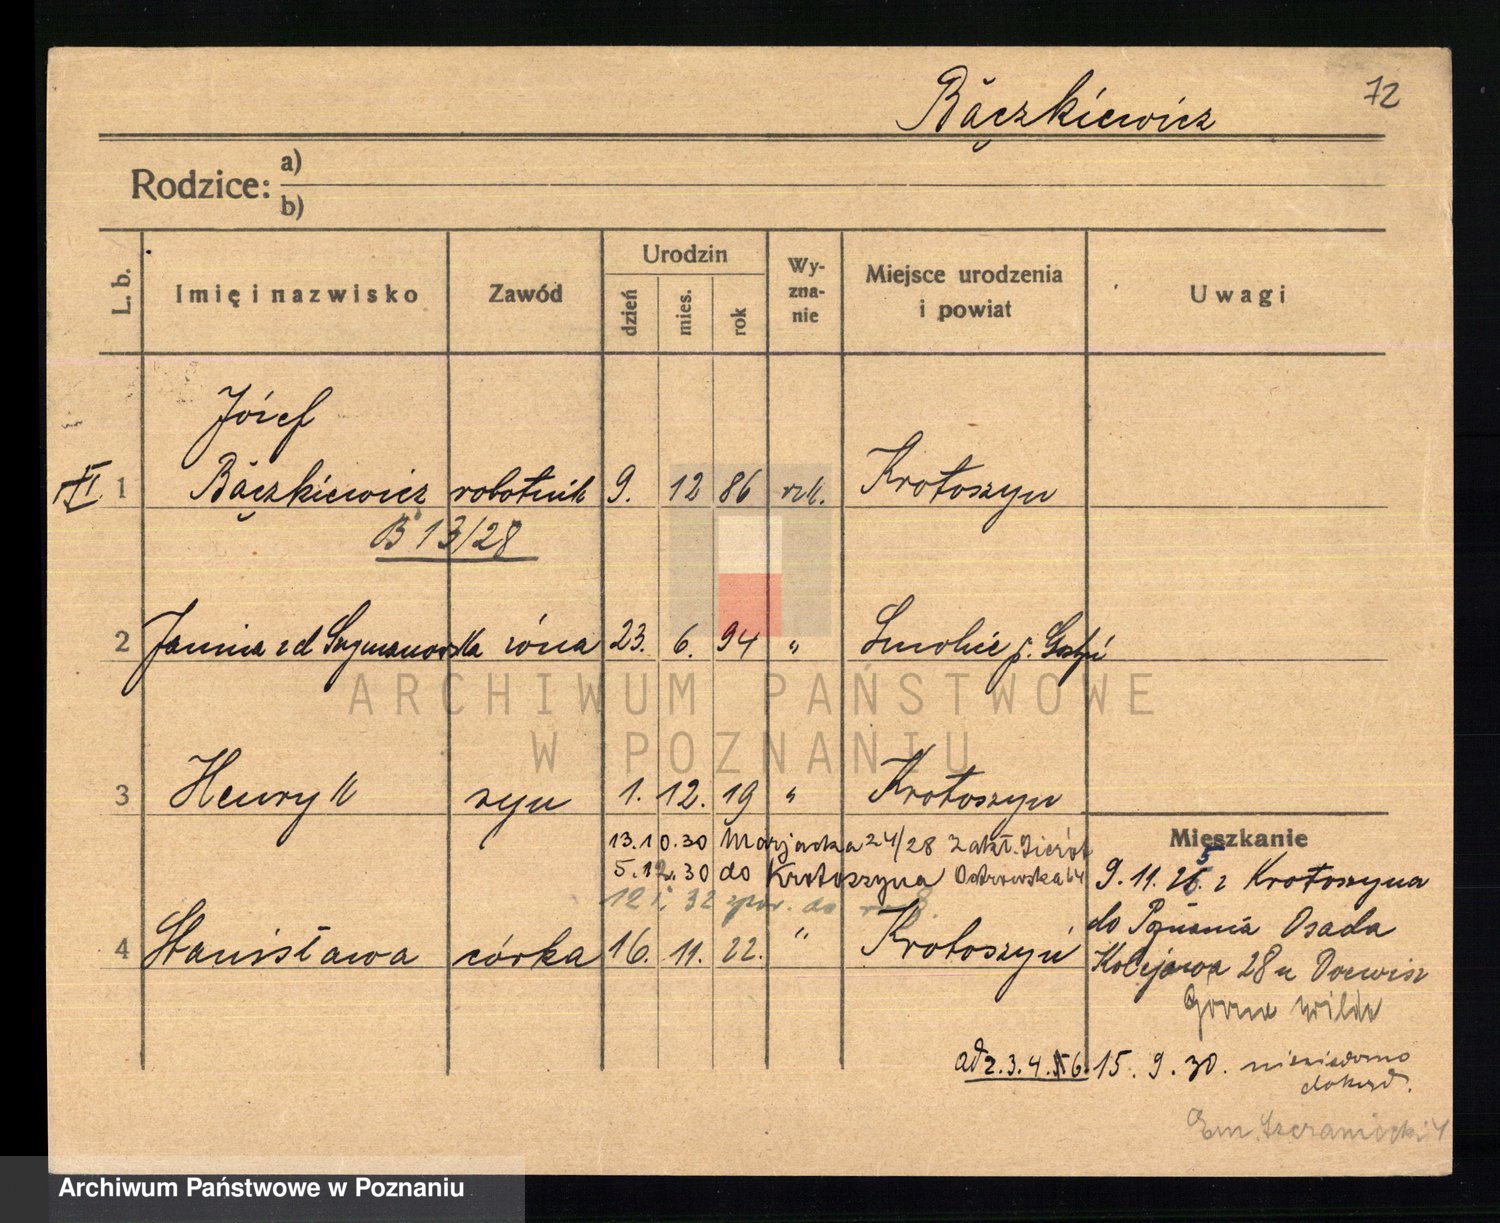 72
Bączkiewicz
Rodzice: a)
b)
L. b. Imię i nazwisko Zawód Urodzin dzień mies. rok Wy-zna-nie Miejsce urodzenia i powiat Uwagi
Józef
VI 1 Bączkiewicz robotnik 9. 12 86 rzk. Krotoszyn
B 13/28
2 Janina z d Szymanowska żona 23. 6. 94 " Smolic p. Gostyń
ARCHIWUM PAŃSTWOWE
W POZNANIU
3 Henryk syn 1. 12. 19 " Krotoszyn
Mieszkanie
13.10.30 24/28 Zakł. Sierót
5.12.30 do Krotoszyna Ostrowska 64
9. 11. 25. z Krotoszyna
12 32 do
do Poznania Osada
4 Stanisława córka 16. 11. 22. " Krotoszyń
Kolejowa 28 u
Górna Wilda
ad 2. 3. 4. 5 6. 15. 9. 30. niewiadomo
dokąd.
Archiwum Państwowe w Poznaniu